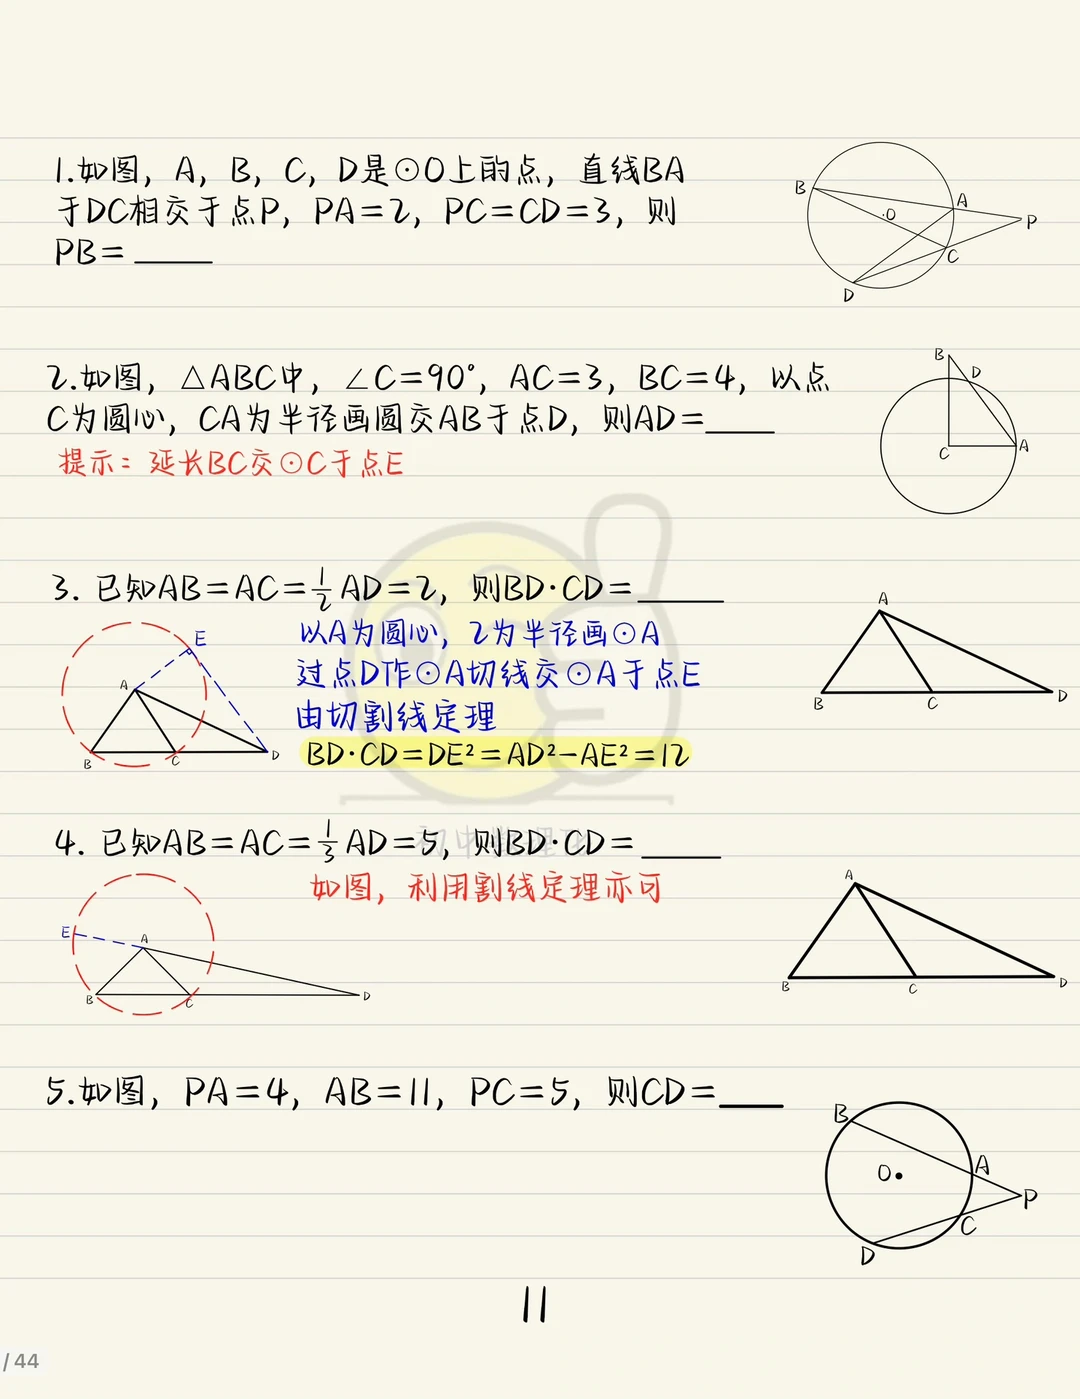 1.如图，A，B，C，D是⊙O上的点，直线BA
于DC相交于点P，PA=2，PC=CD=3，则
PB=____
B
A
O
P
C
D
2.如图，△ABC中，∠C=90°，AC=3，BC=4，以点
C为圆心，CA为半径画圆交AB于点D，则AD=____
提示：延长BC交⊙C于点E
B
D
C
A
3. 已知AB=AC=1/2 AD=2，则BD·CD=____
以A为圆心，2为半径画⊙A
过点D作⊙A切线交⊙A于点E
由切割线定理
BD·CD=DE²=AD²-AE²=12
E
A
B
C
D
A
B
C
D
4. 已知AB=AC=1/3 AD=5，则BD·CD=____
如图，利用割线定理亦可
E
A
B
C
D
A
B
C
D
5.如图，PA=4，AB=11，PC=5，则CD=____
B
A
O
P
C
D
11
/ 44